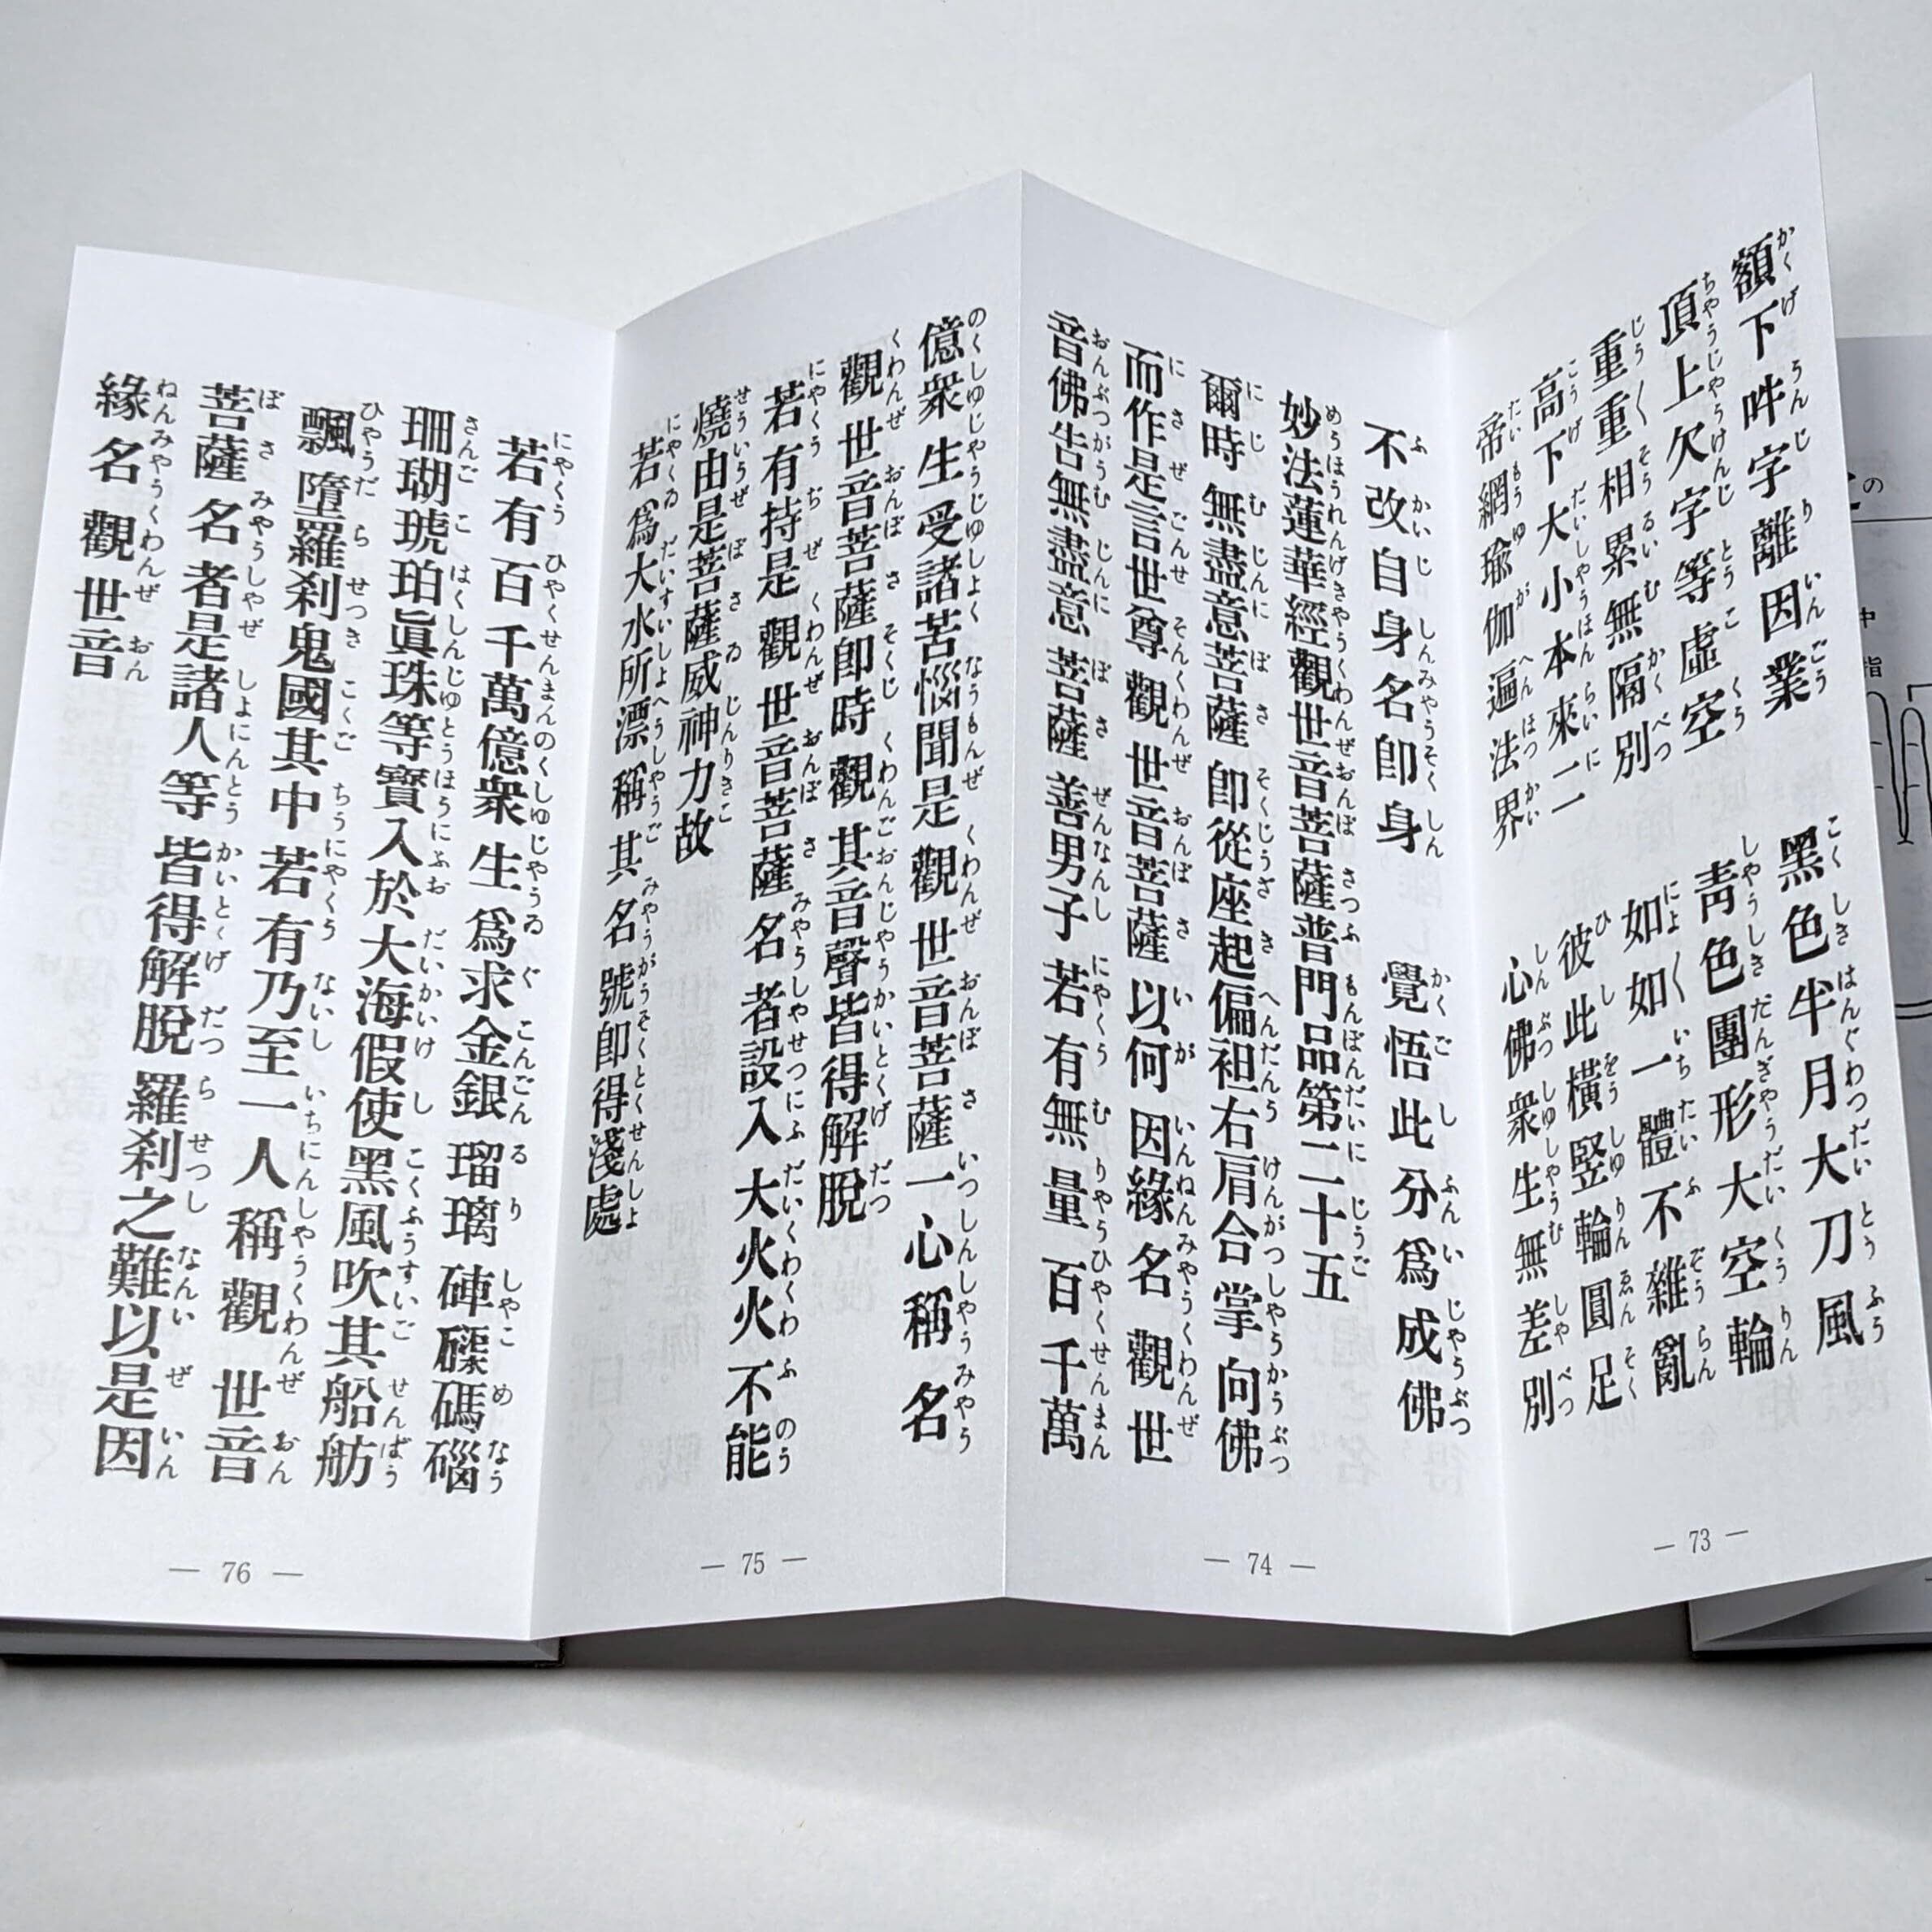 額下吽字離因業　黑色半月大刀風
頂上欠字等虛空　靑色團形大空輪
重重相累無隔別　如如一體不雜亂
高下大小本來一一　彼此橫竪輪圓足
帝網瑜伽遍法界　心佛衆生無差別
— 73 —
不改自身名卽身　覺悟此分爲成佛
妙法蓮華經觀世音菩薩普門品第二十五
爾時無盡意菩薩卽從座起偏袒右肩合掌向佛
而作是言世尊觀世音菩薩以何因緣名觀世
音佛告無盡意菩薩善男子若有無量百千萬
— 74 —
億衆生受諸苦惱聞是觀世音菩薩一心稱名
觀世音菩薩卽時觀其音聲皆得解脫
若有持是觀世音菩薩名者設入大火火不能
燒由是菩薩威神力故
若爲大水所漂稱其名號卽得淺處
— 75 —
若有百千萬億衆生爲求金銀瑠璃硨磲碼碯
珊瑚琥珀眞珠等寶入於大海假使黑風吹其船舫
飄墮羅刹鬼國其中若有乃至一人稱觀世音
菩薩名者是諸人等皆得解脫羅刹之難以是因
緣名觀世音
— 76 —
の
中指